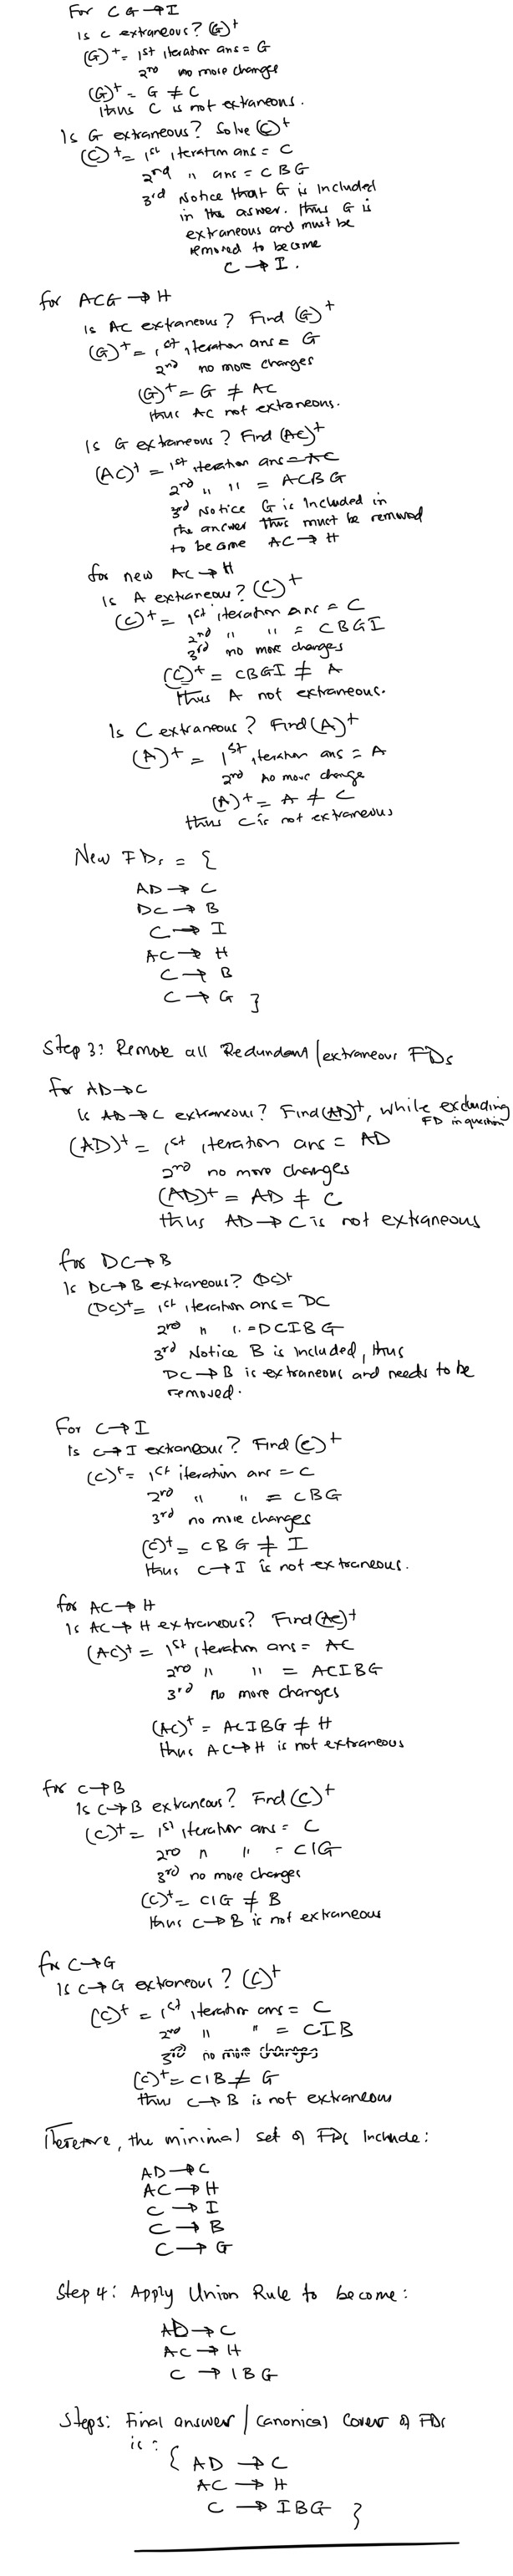 For CG → I
Is C extraneous? (G)+
(G)+ = 1st iteration ans = G
2nd no more changes
(G)+ = G ≠ C
thus C is not extraneous.
Is G extraneous? Solve (C)+
(C)+ = 1st iteration ans = C
2nd " ans = CBG
3rd Notice that G is included
in the answer. Thus G is
extraneous and must be
removed to become
C → I.
for ACG → H
Is AC extraneous? Find (G)+
(G)+ = 1st iteration ans = G
2nd no more changes
(G)+ = G ≠ AC
thus AC not extraneous.
Is G extraneous? Find (AC)+
(AC)+ = 1st iteration ans = AC
2nd " " = ACBG
3rd Notice G is Included in
the answer thus must be removed
to become AC → H
for new AC → H
Is A extraneous? (C)+
(C)+ = 1st iteration ans = C
2nd " " = CBGI
3rd no more changes
(C)+ = CBGI ≠ A
thus A not extraneous.
Is C extraneous? Find (A)+
(A)+ = 1st iteration ans = A
2nd no more change
(A)+ = A ≠ C
thus C is not extraneous
New FDs = {
AD → C
DC → B
C → I
AC → H
C → B
C → G }
Step 3: Remove all Redundant/extraneous FDs
for AD → C
Is AD → C extraneous? Find (AD)+, while excluding
FD in question
(AD)+ = 1st iteration ans = AD
2nd no more changes
(AD)+ = AD ≠ C
thus AD → C is not extraneous
for DC → B
Is DC → B extraneous? (DC)+
(DC)+ = 1st iteration ans = DC
2nd " " = DCIBG
3rd Notice B is included, thus
DC → B is extraneous and needs to be
removed.
For C → I
Is C → I extraneous? Find (C)+
(C)+ = 1st iteration ans = C
2nd " " = CBG
3rd no more changes
(C)+ = CBG ≠ I
thus C → I is not extraneous.
for AC → H
Is AC → H extraneous? Find (AC)+
(AC)+ = 1st iteration ans = AC
2nd " " = ACIBG
3rd no more changes
(AC)+ = ACIBG ≠ H
thus AC → H is not extraneous
for C → B
Is C → B extraneous? Find (C)+
(C)+ = 1st iteration ans = C
2nd " " = CIG
3rd no more changes
(C)+ = CIG ≠ B
thus C → B is not extraneous
for C → G
Is C → G extraneous? (C)+
(C)+ = 1st iteration ans = C
2nd " " = CIB
3rd no more changes
(C)+ = CIB ≠ G
thus C → B is not extraneous
Therefore, the minimal set of FDs Include:
AD → C
AC → H
C → I
C → B
C → G
Step 4: Apply Union Rule to become:
AD → C
AC → H
C → IBG
Step5: Final answer / Canonical Cover of FDs
is: { AD → C
AC → H
C → IBG }